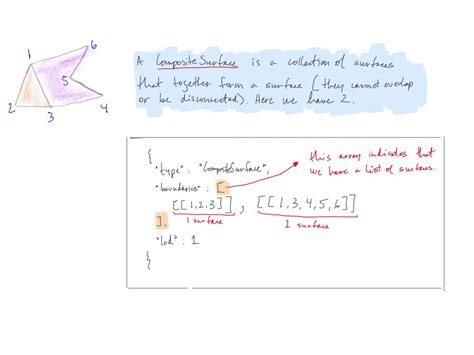 A CompositeSurface is a collection of surfaces
that together form a surface (they cannot overlap
or be disconnected). Here we have 2.
1
6
5
2
3
4
{
"type": "CompositeSurface",
"boundaries": [
this array indicates that
we have a list of surfaces.
[[1,2,3]], [[1,3,4,5,6]]
1 surface
1 surface
],
"lod": 1
{